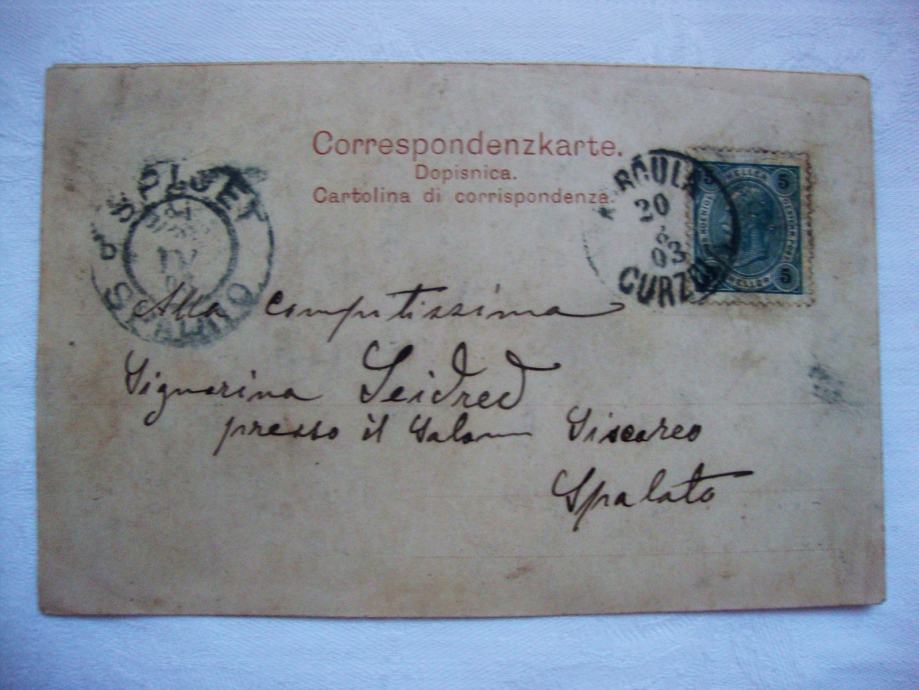 Correspondenzkarte.
Dopisnica.
Cartolina di corrispondenza.
SPLJET
SPALATO
KORČULA
20
8
03
CURZOLA
5 HELLER 5
5
HELLER
Alla compitissima
Signorina Seidred
presso il Salon Siscareo
Spalato